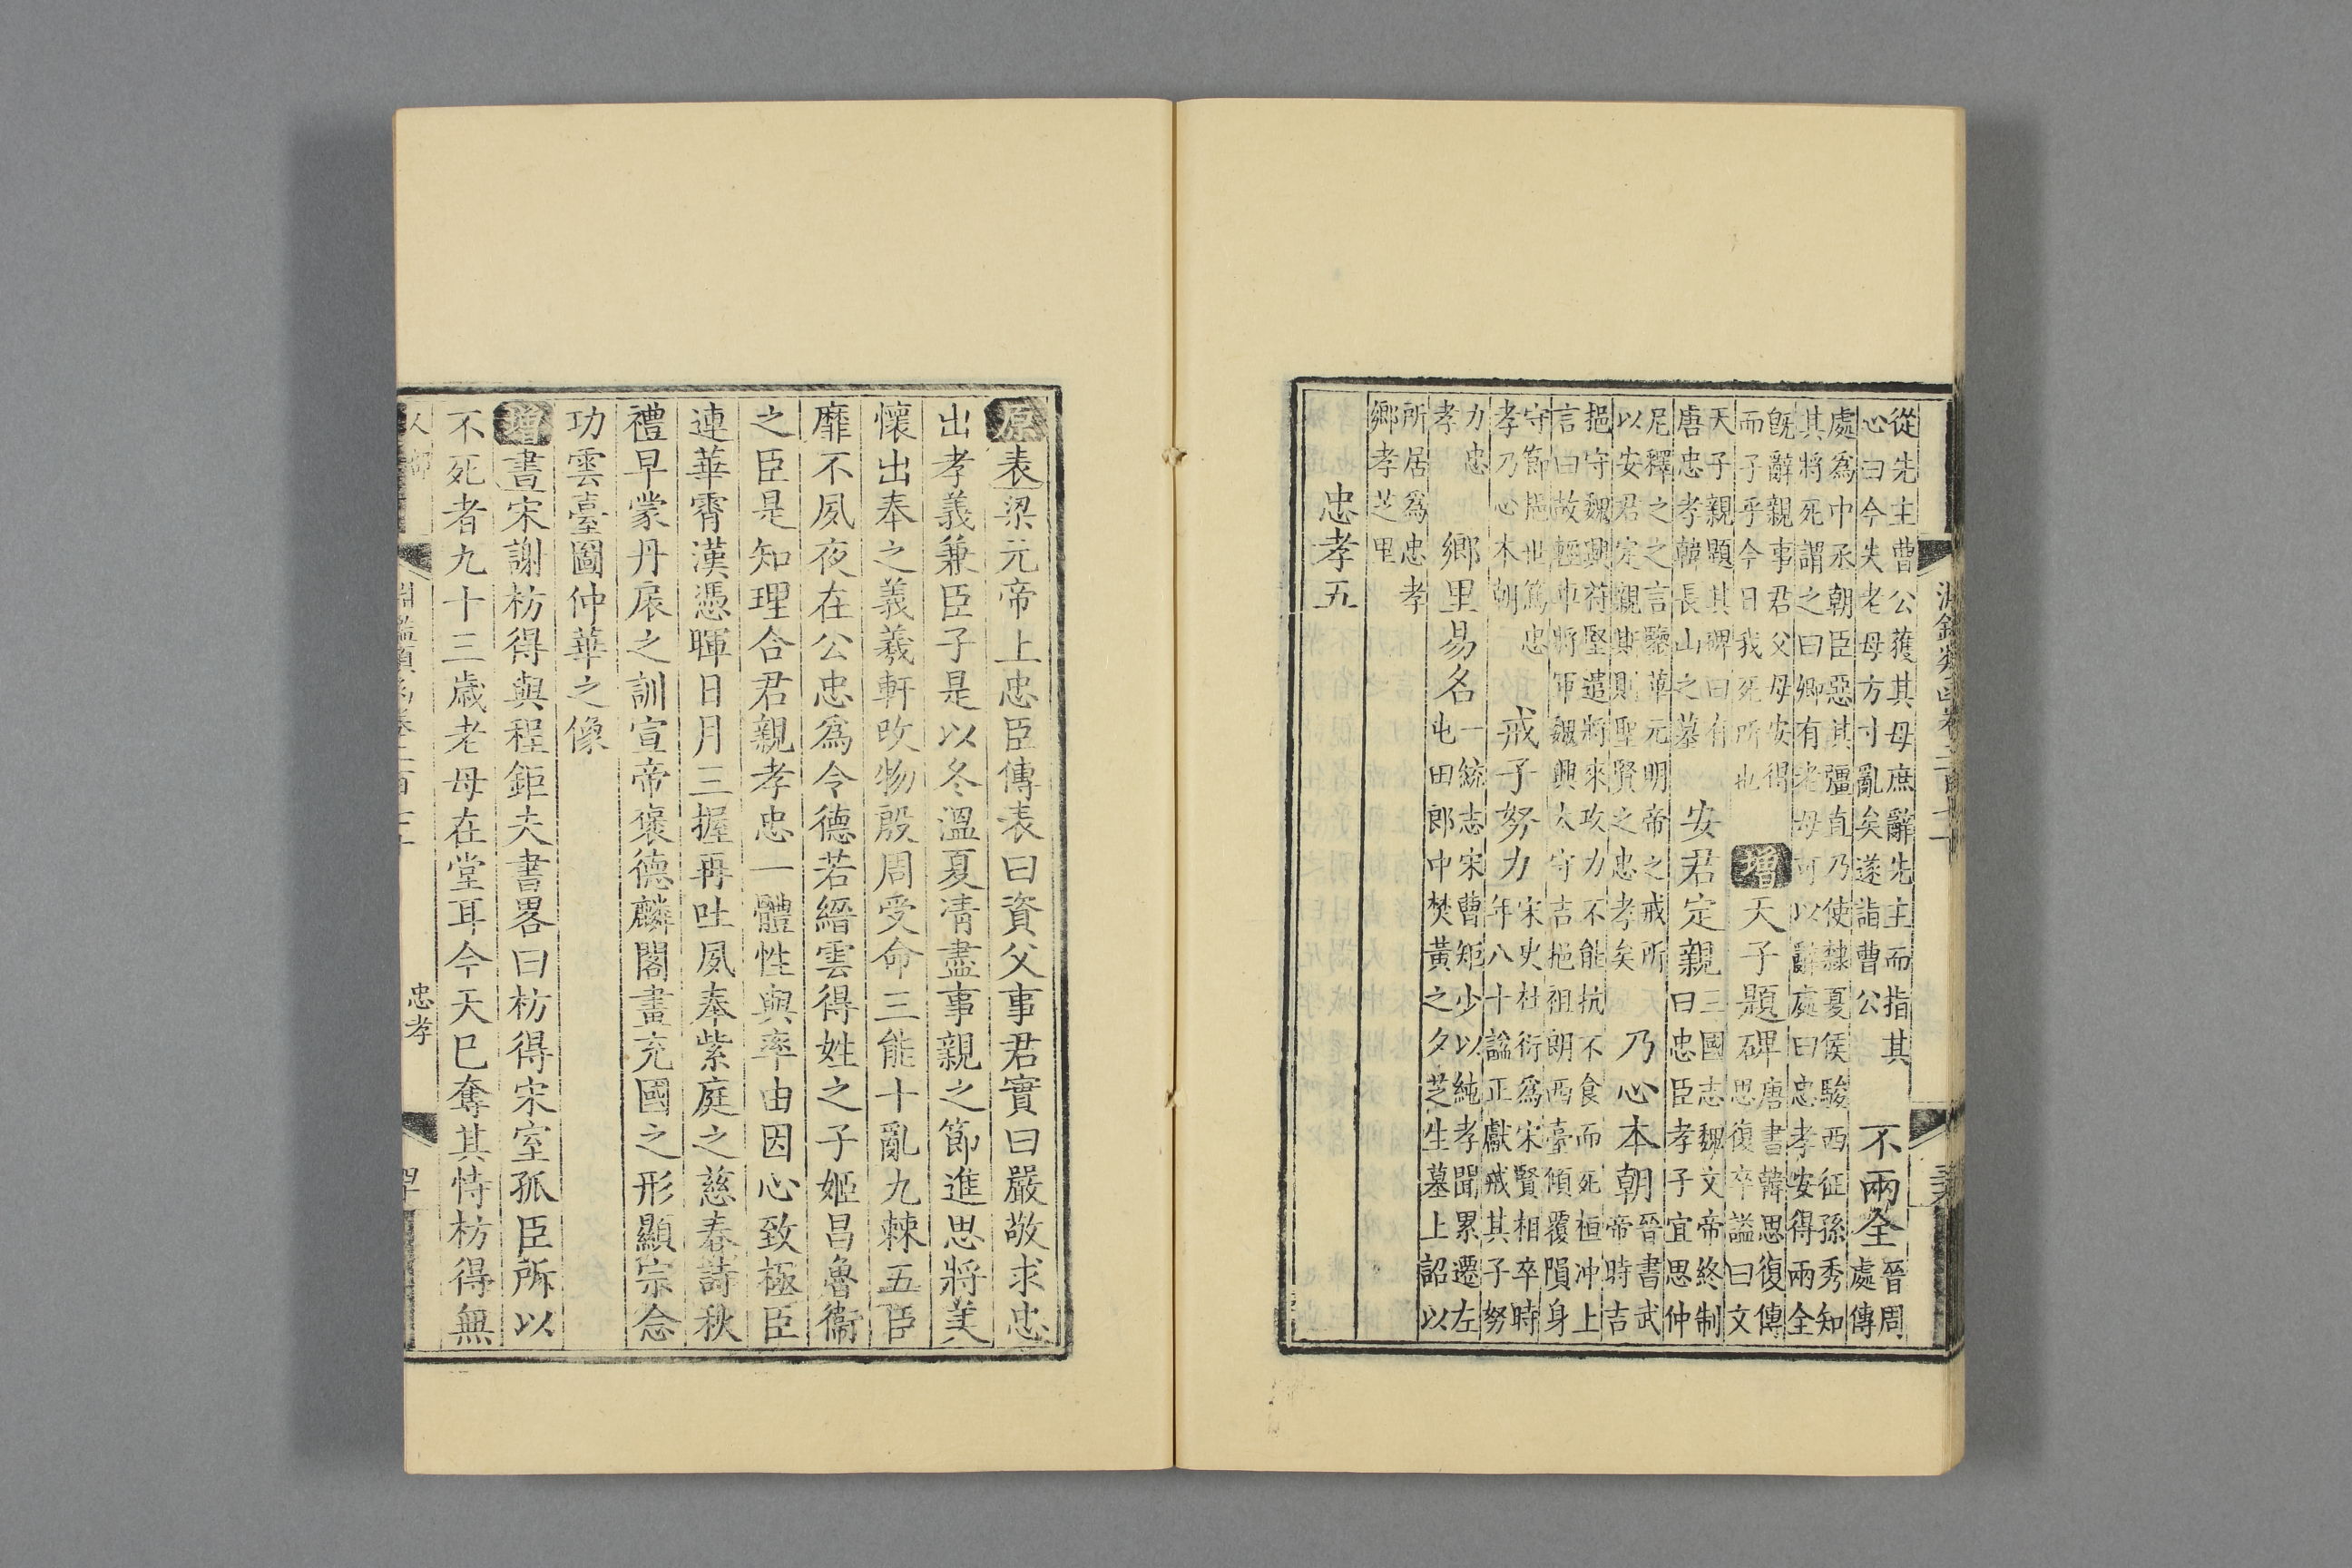 從先主曹公獲其母庶辭先主而指其
心曰今失老母方寸亂矣遂詣曹公
不兩全
晉周
處傳
處爲中丞朝臣惡其彊直乃使隸夏侯駿西征孫秀知
其將死謂之曰卿有老母可以辭處曰忠孝安得兩全
旣辭親事君父母安得
而子乎今日我死所也
增天子題碑
唐書韓思復傳
思復卒謚曰文
天子親題其碑曰有
唐忠孝韓長山之墓
安君定親
三國志魏文帝終制
曰忠臣孝子宜思仲
尼釋之之言鑒華元明帝之戒所
以安君定親斯則聖賢之忠孝矣
乃心本朝
晉書武
帝時吉
挹守魏興苻堅遣將來攻力不能抗不食而死桓冲上
言曰故輕車將軍魏興太守吉挹祖朗西臺傾覆隕身
守節挹世篤忠
孝乃心本朝
戒子努力
宋史杜衍爲宋賢相卒時
年八十謚正獻戒其子努
力忠
孝
鄉里易名
一統志宋曾矩少以純孝聞累遷左
屯田郎中焚黃之夕芝生墓上詔以
所居爲忠孝
鄉孝芝里
忠孝五
原表梁元帝上忠臣傳表曰資父事君實曰嚴敬求忠
出孝義兼臣子是以冬溫夏凊盡事親之節進思將美
懷出奉之義羲軒改物殷周受命三能十亂九棘五臣
靡不夙夜在公忠爲令德若縉雲得姓之子姬昌魯衞
之臣是知理合君親孝忠一體性與率由因心致極臣
連華霄漢憑暉日月三握再吐夙奉紫庭之慈春詩秋
禮早蒙丹扆之訓宣帝褒德麟閣畫充國之形顯宗念
功雲臺圖仲華之像
增書宋謝枋得與程鉅夫書畧曰枋得宋室孤臣所以
不死者九十三歲老母在堂耳今天已奪其恃枋得無
忠孝